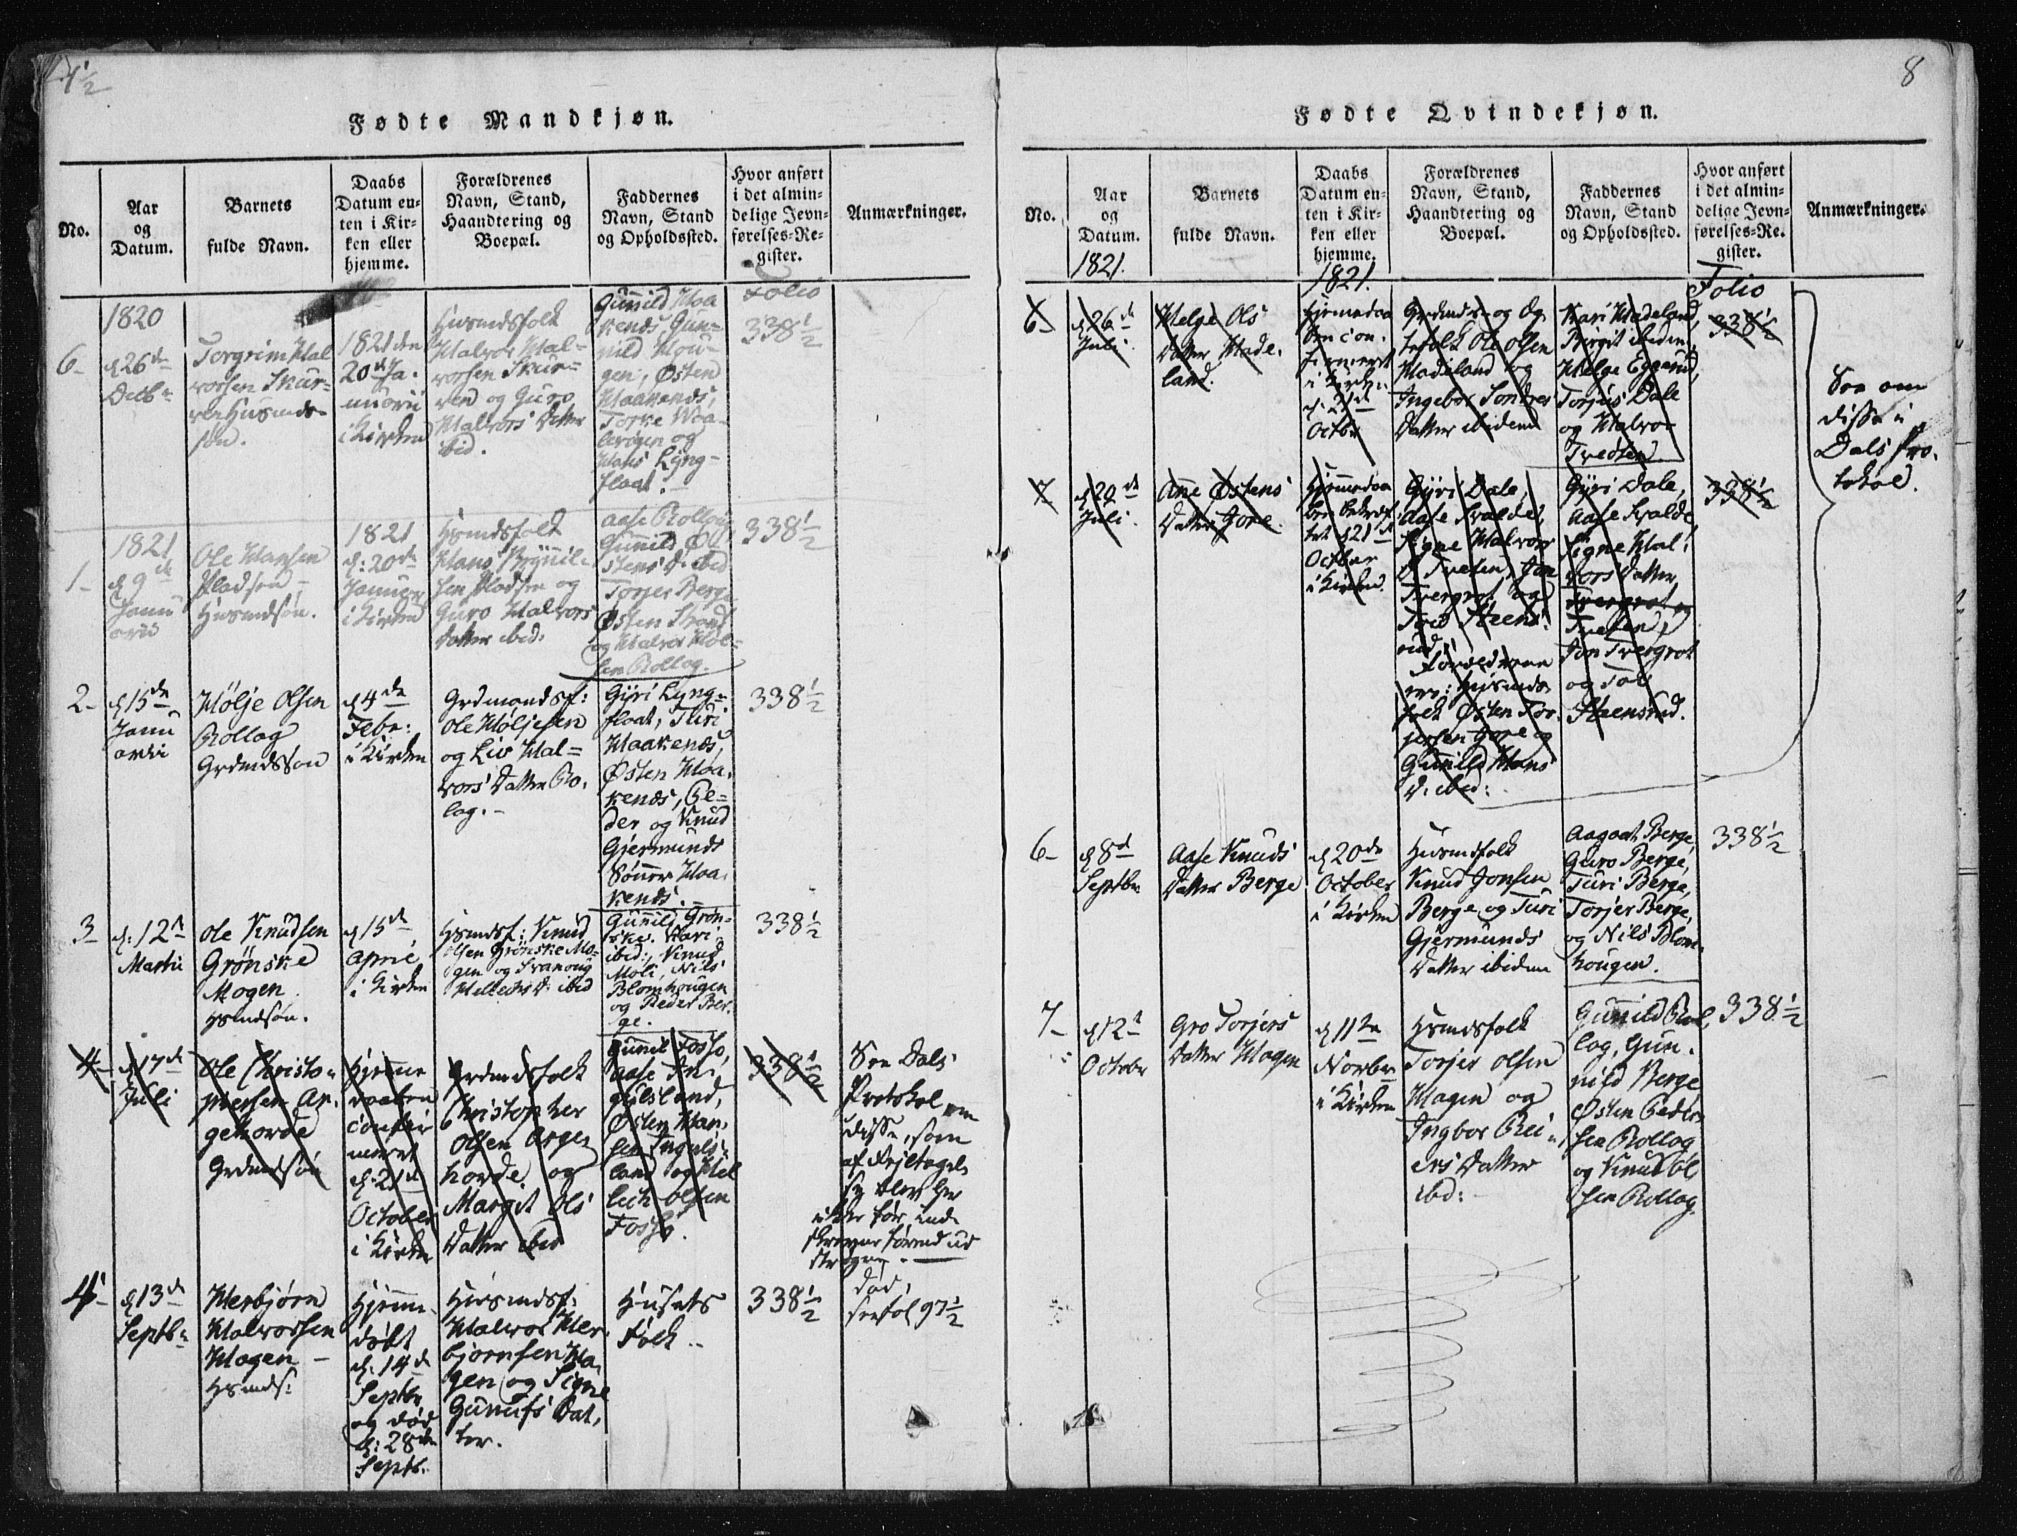 7 1/2
Fødte Mandkjøn.
No.
Aar
og
Datum.
Barnets
fulde Navn.
Daabs
Datum en-
ten i Kir-
ken eller
hjemme.
Forældrenes
Navn, Stand,
Haandtering og
Boepæl.
Faddernes
Navn, Stand
og Opholdssted.
Hvor anført
i det almin-
delige Jevn-
førelses-Re-
gister.
Anmærkninger.
6-
1820
d 26de
Decbr
Torgrim Hal
vorsen Skur-
ven Husmds-
søn.
1821 den
20de Ja-
nuarii
i Kirken
Husmdsfolk
Halvor Hal-
vorsen Skur-
ven og Guro
Halvors Datter
ibid.
Gunild Haa
kenæs, Gun-
nild Hou-
gen, Østen
Haakenæs,
og
Hans Lyng-
float.
Folio
338 1/2
1-
1821
d 9de
Janu
arii
Ole Hansen
Pladsen -
Husmdsøn.
1821
d: 20de
Januar
i Kirken
Husmdsfolk
Hans Brynil-
sen Pladsen og
Guro Halvors
Datter ibid.
Aase Rollag
Gunild Ø
stens D. ibid
Torjer Berge
Østen
og Halvor Hol-
sen Rollag.
338 1/2
2-
d 15de
Janu
arii
Høljе Olsen
Rollag
Grdmdssøn
d 4de
Febr:
i Kirken
Grdmandsf:
Ole Høljesen
og Liv Hal=
vors Datter Ro-
lag. -
Gyri Lyng=
float, Turi
Haakenæs,
Østen Haa-
kenæs, Pe=
der og Knud
Gjermunds
Sønner Haa-
kenæs. -
338 1/2
3-
d: 12te
Martii
Ole Knudsen
Grønske
Mogen.
Husmdsøn.
d 15de
April
i Kirken
Husmdsf: Knud
Olsen Grønske Mo-
gen og Svanoug
Hellechs D. ibid
Gunild Grøn-
ske. Kari
ibid:, Knud
Moli, Nils
Blomhougen
og Peder Ber-
ge.
338 1/2
4-
d 17de
Juli
Ole Christo-
phersen Ar-
gehovde
Grdmdsøn
Hjemme
daaben
confir
meret
d. 21de
October
i Kirken
Grdmdsfolk
Christopher
Olsen Arge-
hovde og
Margit Ols
Datter ibid
Gunil Fosso,
Aase In-
gulsland,
Østen Han-
sen Inguls-
land og Hel
lech Olsen
Fosso.
338 1/2
See Dals
Protokol om
disse, som
af Feiltagel-
se blev her
indskrevne førend ud
strøgne. -
4-
d 13de
Septbr
Herbjørn
Halvorsen
Hagen -
Husmds:
Hjemme-
døbt
d. 14de
Septbr
og død
d: 28de
Septb.
Husmdsf:
Halvor Her-
bjørnsen Ha-
gen og Signe
Gunulfs Dat-
ter.
Husets
Folk.
338 1/2
død,
see fol 97 1/2
8
Fødte Qvindekjøn.
No.
Aar
og
Datum.
1821.
Barnets
fulde Navn.
Daabs
Datum en-
ten i Kir-
ken eller
hjemme.
1821.
Forældrenes
Navn, Stand,
Haandtering og
Boepæl.
Faddernes
Navn, Stand
og Opholdssted.
Hvor anført
i det almin-
delige Jevn-
førelses-Re-
gister.
Folio
Anmærkninger.
6-
d 26de
Juli
Helge Ols
Datter Hade-
land.
Hjemmedaa
ben con-
firmeret
i Kirken
d. 21de
Octbr
Grdmds- og
folk Ole Olsen
Hadeland og
Ingebor Søndres
Datter ibidem
Kari Hadeland,
Birgit ibidem,
Helge Eggerud,
Torjus Dale
og Halvor
Tveiten
338 1/2
See om
disse i
Dals Pro-
tokol.
7
d 29de
Juli
Ane Østens
Datter Jore.
Hjemmedaa
ben bekræf
tet d 21de
October
i Kirken
Gyri Dale,
Aase Fvalde,
Signe Halvors
D Tveten, Jon
Tvergrot og
Tore Steens-
rud.
Forældrene
ere: Husmds
folk Østen Tor-
jersen Jore og
Gunild Hans
D. ibid:
Gyri Dale,
Aase Fvalde
Signe Hal-
vors Datter
Tvergrot og
Tveten,
Jon Tvergrot
og Tore
Steensrud.
338 1/2
6-
d 8de
Septbr
Aase Knuds
Datter Berge
d 20de
October
i Kirken
Husmdsfolk
Knud Jonsen
Berge og Turi
Gjermunds
Datter ibidem
Aagaat Berge,
Guro Berge,
Turi Berge,
Torjer Berge,
og Nils Blom-
hougen.
338 1/2
7-
d 12te
October
Gro Torjers
Datter Hagen
d 11te
Novbr
i Kirken
Husmdsfolk
Torjer Olsen
Hagen og
Ingbor Rei-
ers Datter
ibid:
Gunild Rol
lag, Gun-
nild Berge
Østen Peder-
sen Rollag
og Knud Ol
sen Rollag.
338 1/2